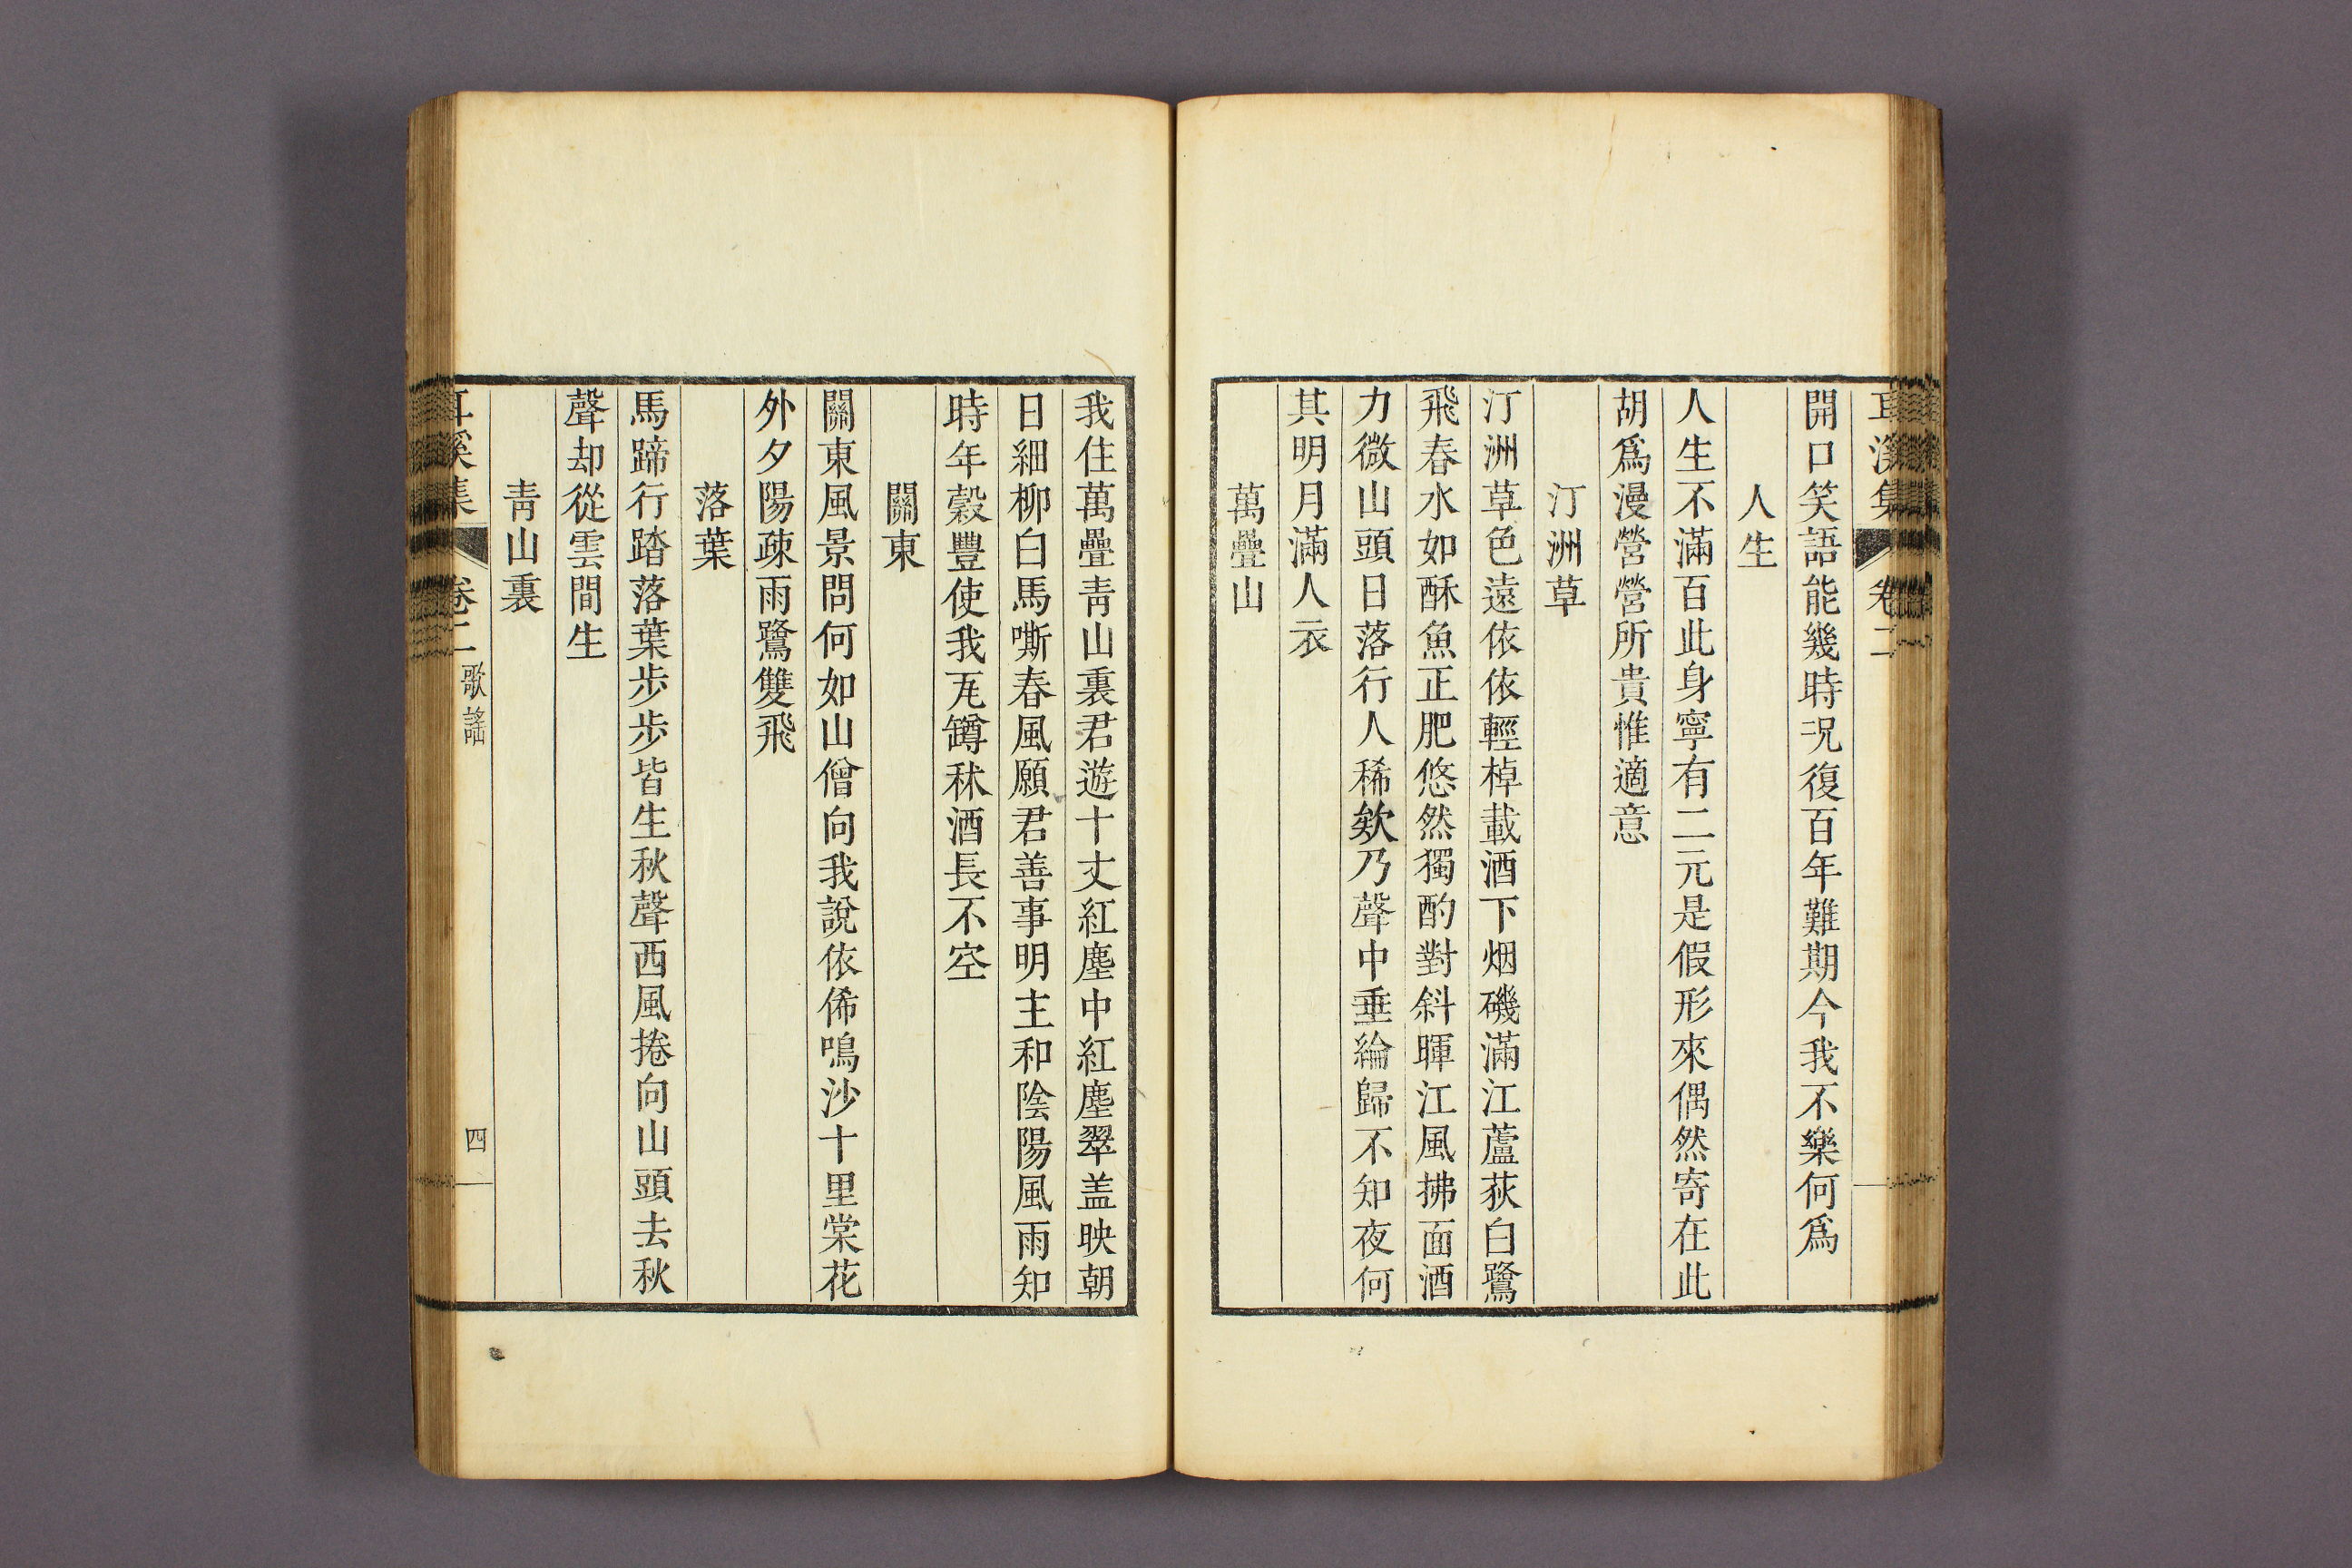 耳溪集 卷二
開口笑語能幾時况復百年難期今我不樂何爲
人生
人生不滿百此身寧有二元是假形來偶然寄在此
胡爲漫營營所貴惟適意
汀洲草
汀洲草色遠依依輕棹載酒下烟磯滿江蘆荻白鷺
飛春水如酥魚正肥悠然獨酌對斜暉江風拂面酒
力微山頭日落行人稀欸乃聲中垂綸歸不知夜何
其明月滿人衣
萬疊山
我住萬疊靑山裏君遊十丈紅塵中紅塵翠盖映朝
日細柳白馬嘶春風願君善事明主和陰陽風雨知
時年穀豐使我瓦罇秫酒長不空
關東
關東風景問何如山僧向我說依俙鳴沙十里棠花
外夕陽疎雨鷺雙飛
落葉
馬蹄行踏落葉步步皆生秋聲西風捲向山頭去秋
聲却從雲間生
靑山裏
耳溪集 卷二 歌謠 四